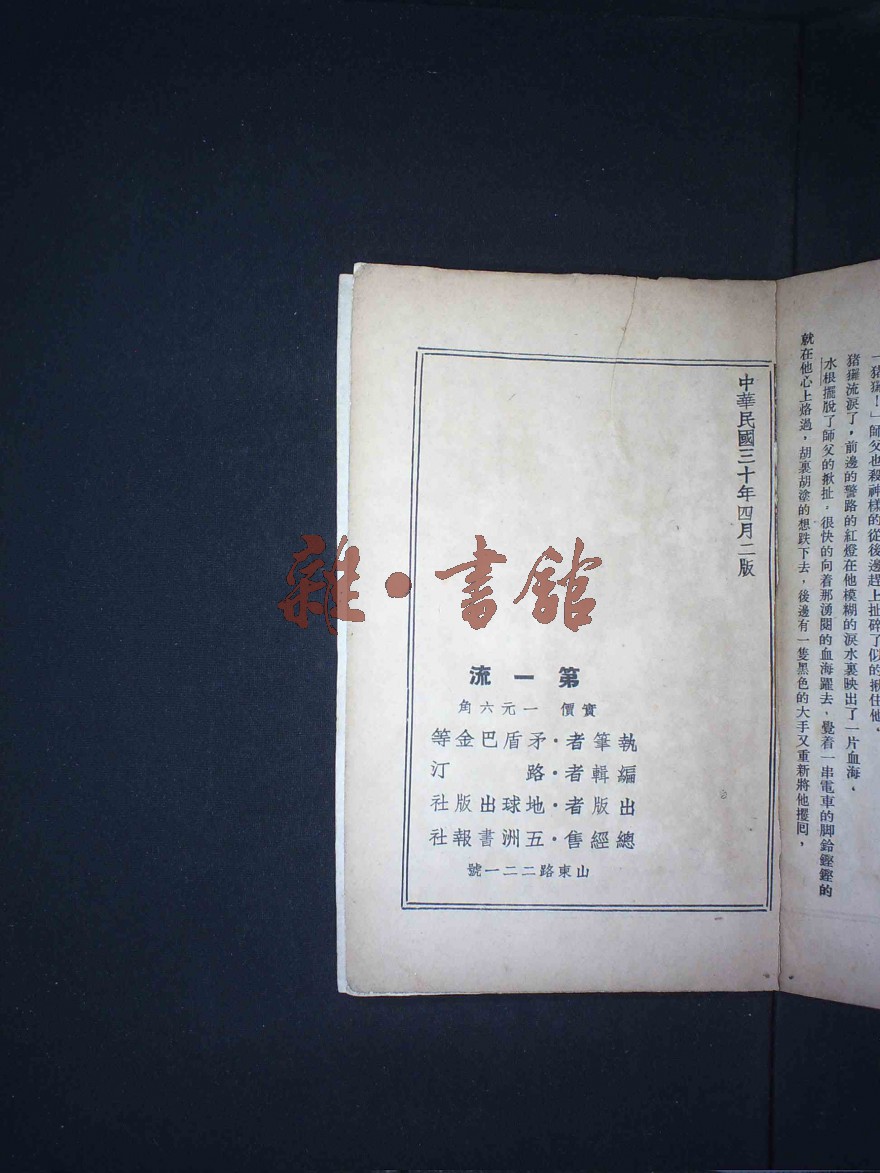 「猪玀！」師父也殺神樣的從後邊趕上扯碎了似的揪住他．
猪玀流淚了，前邊的警路的紅燈在他模糊的淚水裏映出了一片血海．
水根擺脫了師父的揪扯，很快的向着那湧閱的血海躍去，覺着一串電車的脚鈴鏗鏗的
就在他心上烙過，胡裏胡塗的想跌下去，後邊有一隻黑色的大手又重新將他攫囘，
中華民國三十年四月二版
第一流
實價 一元六角
執筆者・矛盾巴金等
編輯者・路汀
出版者・地球出版社
總經售・五洲書報社
山東路二二一號
雜・書館